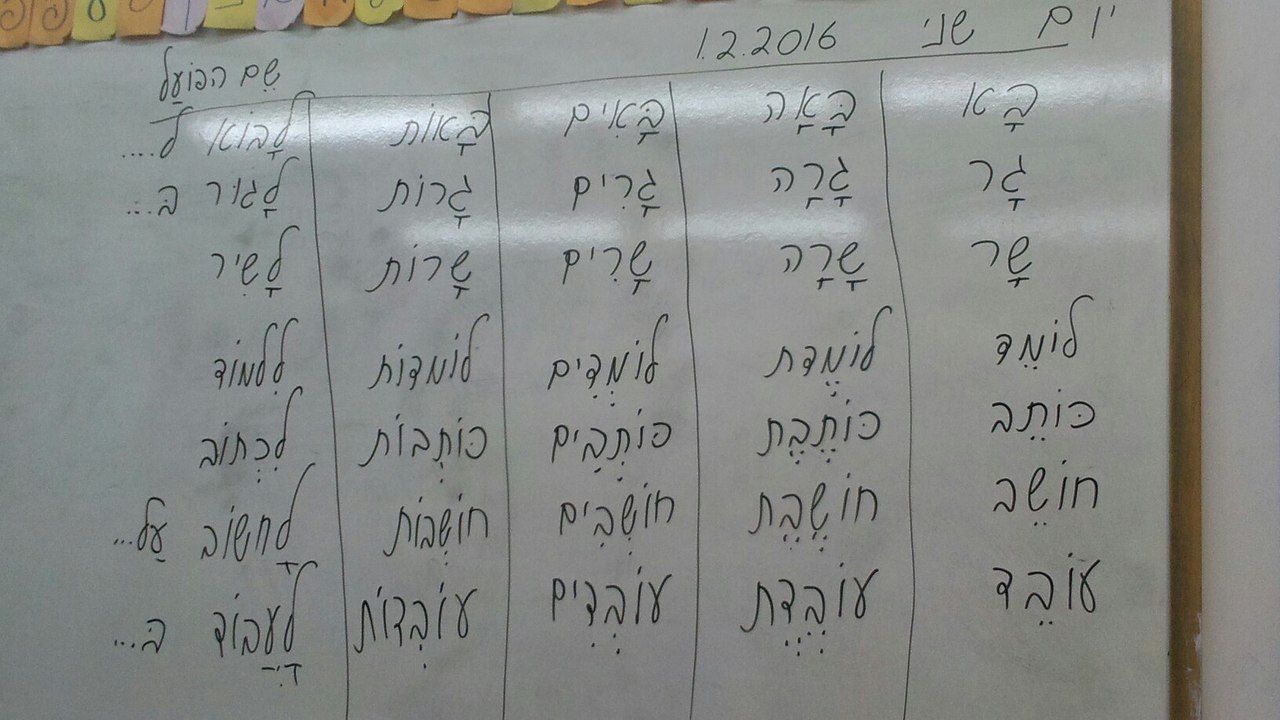 יום שני 1.2.2016
שֵׁם הפּוֹעַל
בָּא בָּאָה בָּאִים בָּאוֹת לָבוֹא ל....
גָר גָרָה גָרִים גָרוֹת לָגוּר ב...
שָר שָרָה שָרִים שָרוֹת לָשִיר
לוֹמֵד לוֹמֶדֶת לוֹמְדִים לוֹמדוֹת לִלמוֹד
כּוֹתֵב כּוֹתֶבֶת כּוֹתְבִים כּוֹתְבוֹת לִכְתוֹב
חוֹשֵב חוֹשֶבֶת חוֹשְבִים חוֹשְבוֹת לַחשוֹב עַל...
עוֹבֵד עוֹבֶדֶת עוֹבְדִים עוֹבְדוֹת לַעֲבוֹד ב...